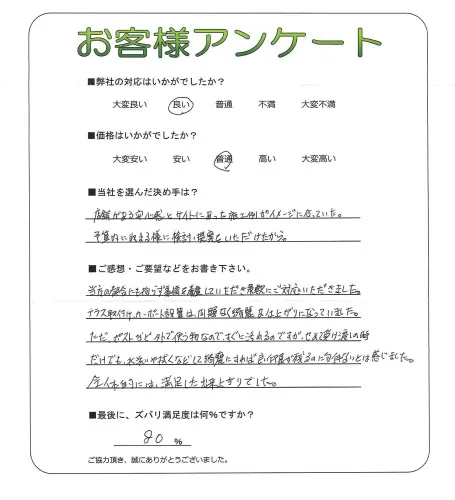 お客様アンケート
■弊社の対応はいかがでしたか？
大変良い 良い 普通 不満 大変不満
■価格はいかがでしたか？
大変安い 安い 普通 高い 大変高い
■当社を選んだ決め手は？
店舗がある安心感とサイトにあった施工例がイメージに合っていた。
予算内に収まる様に検討、提案をいただけたから。
■ご感想・ご要望などをお書き下さい。
当方の都合にも拘らず事情を していただき柔軟にご対応いただきました。
テラス取付け、カーポート設置は、問題なく綺麗な仕上がりになっていました。
ただ、ポストなど外で使う物なので、すぐに汚れるのですが、せめて受け渡しの時
だけでも、水洗いや拭くなどして綺麗にすれば 印象が残るのに勿体ないとは感じました。
全体的には、満足した出来上がりでした。
■最後に、ズバリ満足度は何％ですか？
80 ％
ご協力頂き、誠にありがとうございました。